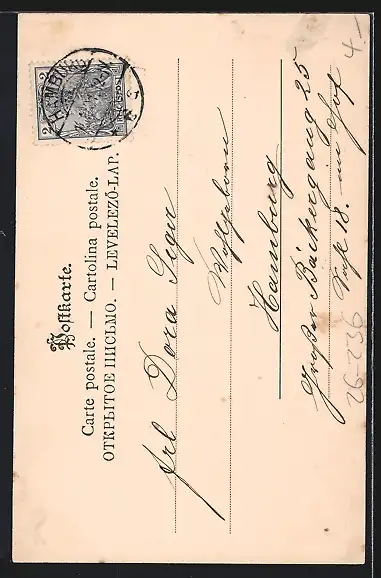 Postkarte.
Carte postale. — Cartolina postale.
ОТКРЫТОЕ ПИСЬМО. — LEVELEZŐ-LAP.
HAMBURG
2
2
Reichspost
frl Dora Seger
Hamburg
Großer Bäckergang 25
Hof
18.
4-
26-236